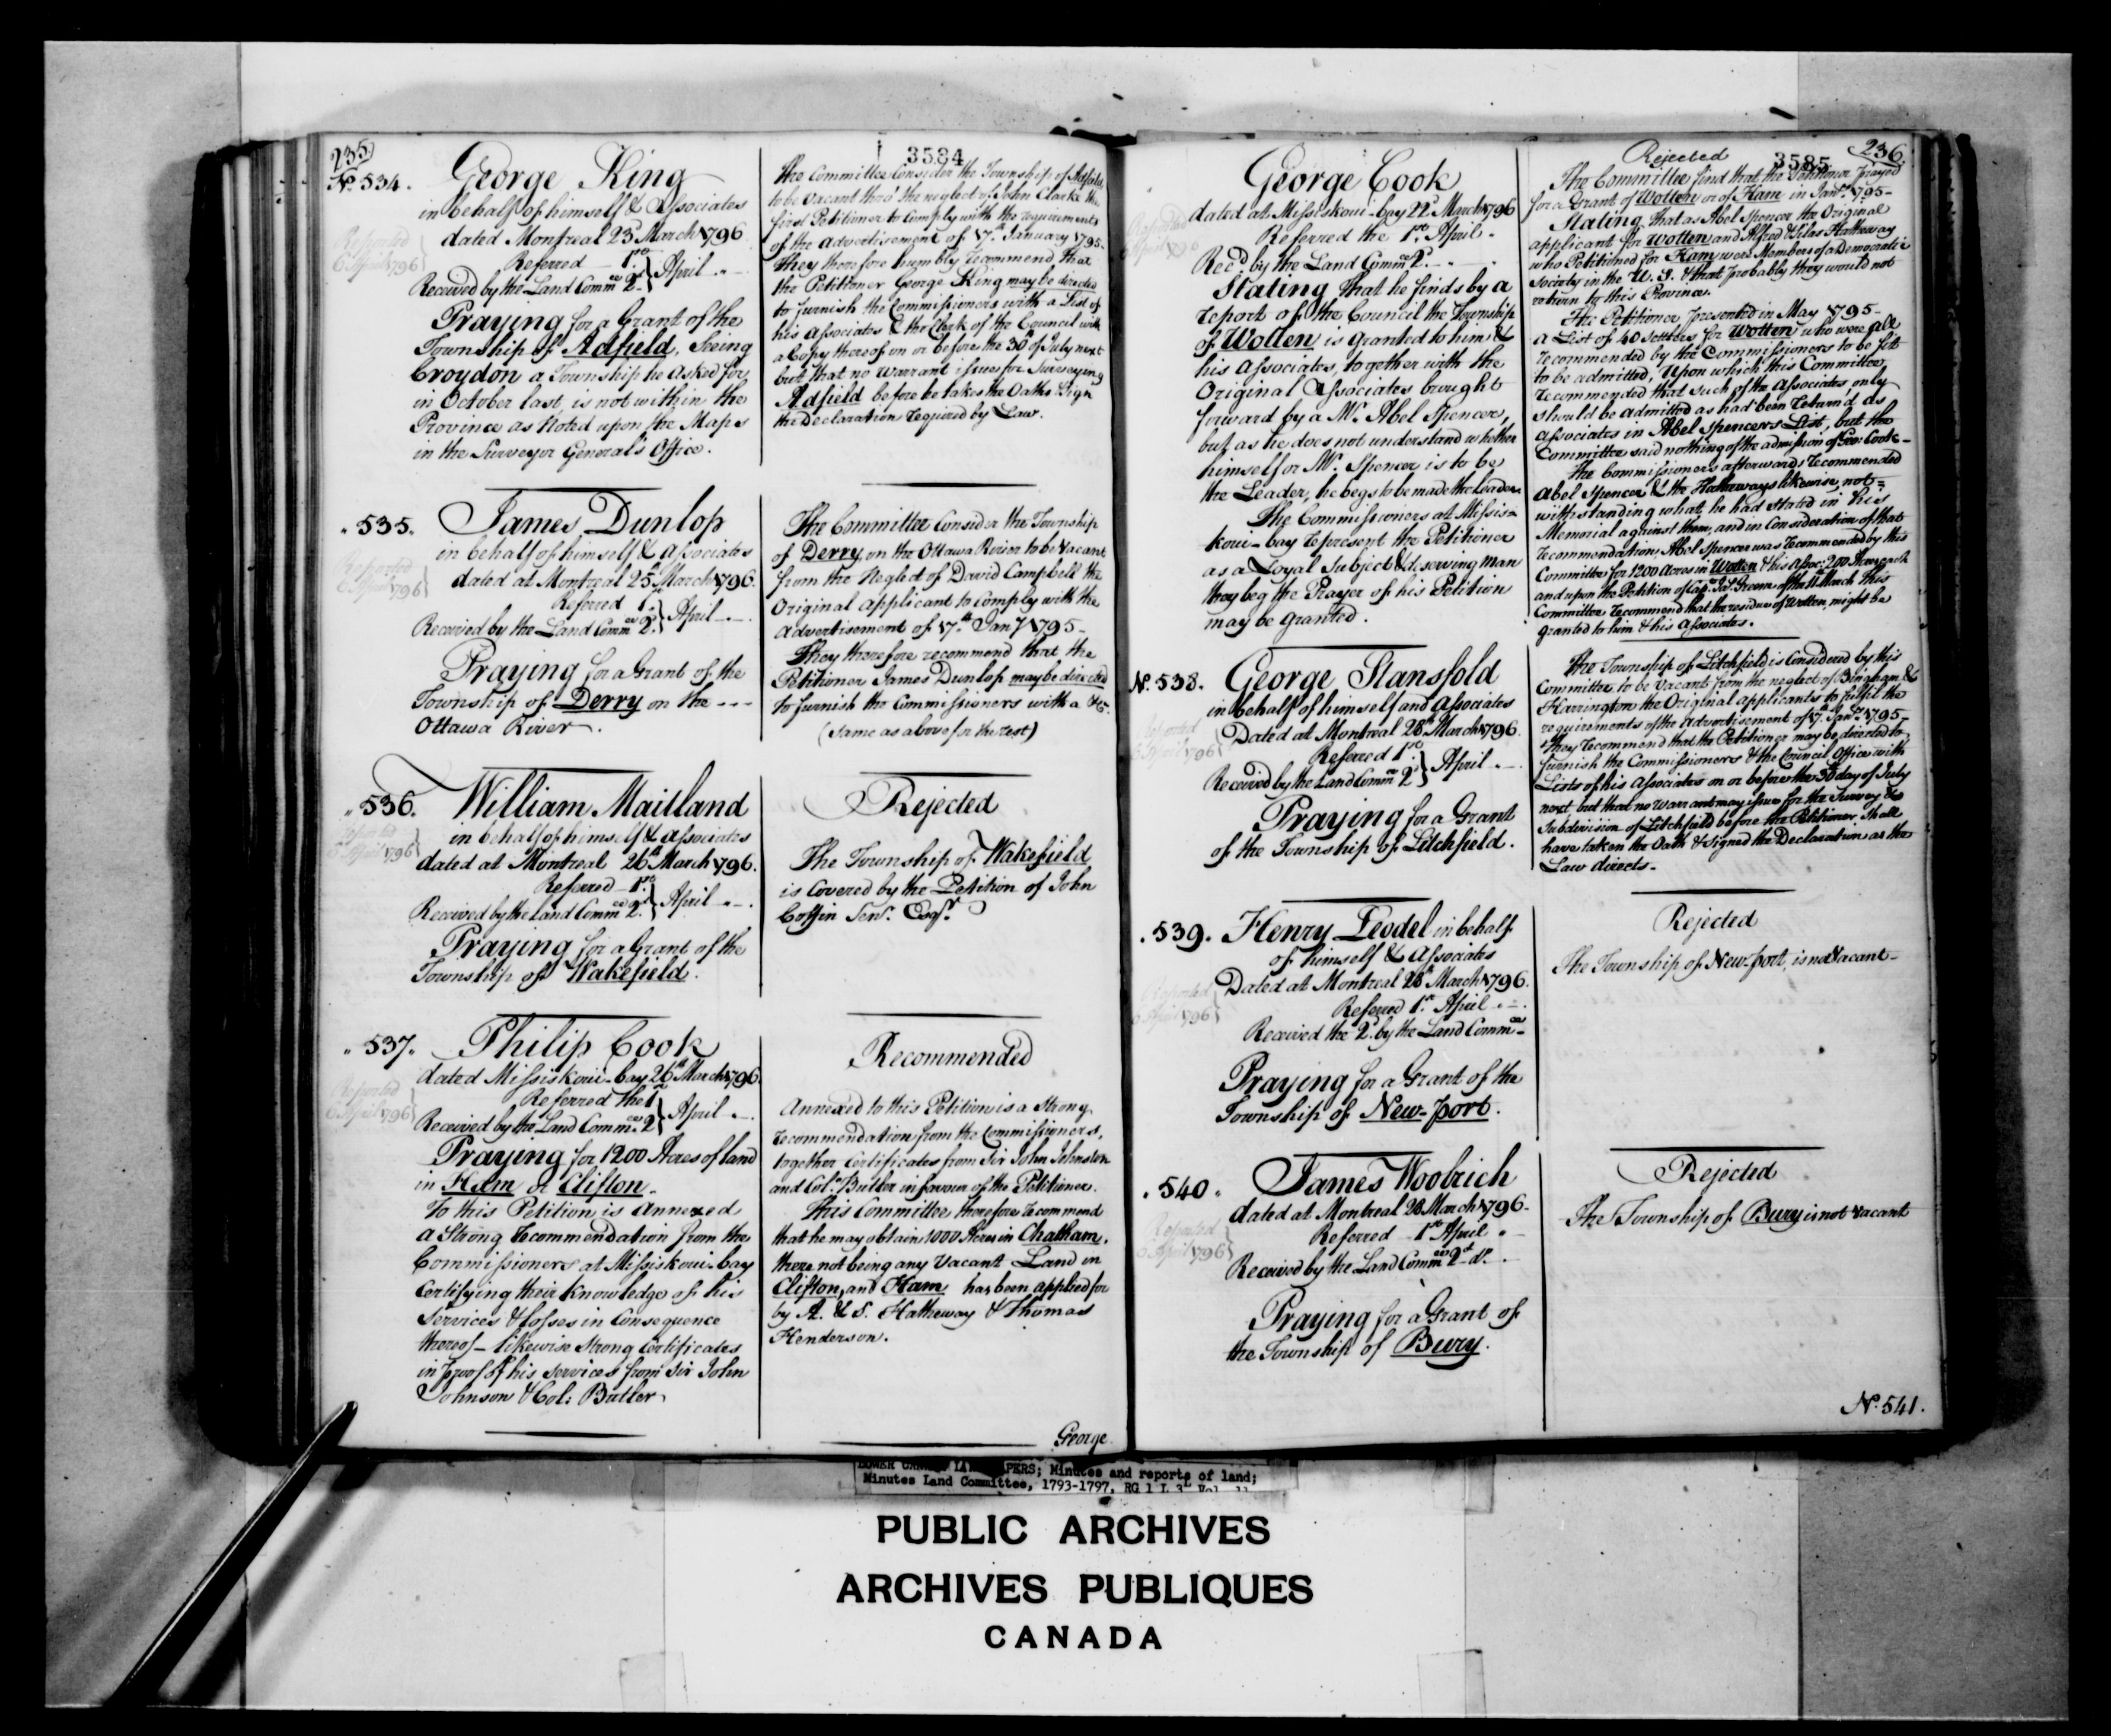 235
3584
No. 534.
George King
in behalf of himself & Associates
dated Montreal 23d March 1796
Referred 1st
Received by the Land Commee 2d } April
Praying for a Grant of the
Township of Adfield, Seeing
Croydon a Township he asked for
in October last is not within the
Province as Noted upon the Maps
in the Surveyor General's Office.
Reported
6 April 1796
The Committee Consider the Township of Adfield
to be vacant thro' the neglect of John Clarke the
first Petitioner to comply with the requirements
of the advertisement of 17th January 1795-
They therefore humbly recommend that
the Petitioner George King may be directed
to furnish the Commissioners with a List of
his Associates & the Clerk of the Council with
a Copy thereof on or before the 30th of July next
but that no warrant issues for Surveying
Adfield before he takes the Oaths & Sign
the Declaration required by Law.
" 535.
James Dunlop
in behalf of himself & Associates
dated at Montreal 25th March 1796.
Referred 1st
Received by the Land Commee 2d } April
Praying for a Grant of the
Township of Derry on the ---
Ottawa River.
Reported
6 April 1796
The Committee Consider the Township
of Derry on the Ottawa River to be vacant
from the Neglect of David Campbell the
Original applicant to Comply with the
advertisement of 17th Jany 1795-
They therefore recommend that the
Petitioner James Dunlop may be directed
to furnish the Commissioners with a &c.
(Same as above for the rest)
" 536.
William Maitland
in behalf of himself & Associates
dated at Montreal 26th March 1796.
Referred 1st
Received by the Land Commee 2d } April
Praying for a Grant of the
Township of Wakefield.
Reported
6 April 1796
Rejected
The Township of Wakefield
is Covered by the Petition of John
Coffin Senr. Esqr.
" 537.
Philip Cook
dated Missiskoui-bay 26th March 1796.
Referred the 1st
Received by the Land Commee 2 } April
Praying for 1200 Acres of land
in Ham or Clifton.
To this Petition is Annexed
a Strong recommendation from the
Commissioners at Missiskoui-bay
Certifying their knowledge of his
services & losses in Consequence
thereof - likewise Strong Certificates
in proof of his services from Sir John
Johnson & Col: Butler
Reported
6 April 1796
Recommended
Annexed to this Petition is a Strong
recommendation from the Commissioners,
together Certificates from Sir John Johnston
and Coln. Butler in favour of the Petitioner.
This Committee therefore recommend
that he may obtain 1000 Acres in Chatham,
there not being any Vacant Land in
Clifton, and Ham has been applied for
by A. & S. Hatheway & Thomas
Henderson.
George
3585
236
George Cook
dated at Missiskoui-bay 22d March 1796
Referred the 1st April
Rec'd by the Land Commee 2d
Stating that he finds by a
report of the Council the Township
of Wotten is granted to him &
his Associates, together with the
Original Associates brought
forward by a Mr. Abel Spencer,
but as he does not understand whether
himself or Mr. Spencer is to be
the Leader, he begs to be made the Leader.
The Commissioners at Missis=
koui-bay represent the Petitioner
as a Loyal Subject & deserving man
they beg the Prayer of his Petition
may be granted.
Rejected
The Committee find that the Petitioner prayed
for a Grant of Wotten or of Ham in Jany. 1795-
Stating that as Abel Spencer the Original
applicant for Wotten and Alfred & Silas Hatheway
who Petitioned for Ham were Members of a Democratic
Society in the U. S. & that probably they would not
return to this Province.
The Petitioner presented in May 1795-
a List of 40 settlers for Wotten who were all
recommended by the Commissioners to be fitt
to be admitted, Upon which this Committee
recommended that such of the Associates, only
should be admitted as had been return'd as
Associates in Abel Spencers List, but the
Committee said nothing of the admission of Geo: Cook-
The Commissioners afterwards recommended
Abel Spencer & the Hatheways likewise, not=
withstanding what he had stated in his
Memorial against them, and in Consideration of that
recommendation, Abel Spencer was recommended by this
Committee for 1200 Acres in Wotten & his Assoc: 200 Acres each
and upon the Petition of Capn. Green of the 11th March this
Committee recommend that the residue of Wotten, might be
granted to him & his Associates.
No. 538.
George Stansfold
in behalf of himself and Associates
Dated at Montreal 28th March 1796.
Referred 1st
Received by the Land Commee 2d } April
Praying for a Grant
of the Township of Litchfield.
Reported
6 April 1796
The Township of Litchfield is Considered by this
Committee to be vacant from the neglect of Bingham &
Harrington the Original applicants to fulfil the
requirements of the advertisement of 17th Jany. 1795-
They recommend that the Petitioner may be directed to
furnish the Commissioners & the Council Office with
Lists of his Associates on or before the 30 day of July
next but that no warrant may issue for the Survey &
Subdivision of Litchfield before the Petitioner Shall
have taken the Oath & signed the Declaration as the
Law directs.
. 539.
Henry Leodel in behalf
of himself & Associates
Dated at Montreal 28th March 1796.
Referred 1st April
Received the 2d by the Land Commee
Praying for a Grant of the
Township of New-port.
Reported
6 April 1796
Rejected
The Township of New-port, is not vacant-
. 540.
James Woolrich
dated at Montreal 28 March 1796.
Referred 1st April
Received by the Land Commee 2d do.
Praying for a Grant of
the Township of Bury.
Reported
6 April 1796
Rejected
The Township of Bury is not vacant
No. 541.
LOWER CANADA LAND PAPERS; Minutes and reports of land;
Minutes Land Committee, 1793-1797, RG 1 L 3 Vol. 11
PUBLIC ARCHIVES
ARCHIVES PUBLIQUES
CANADA